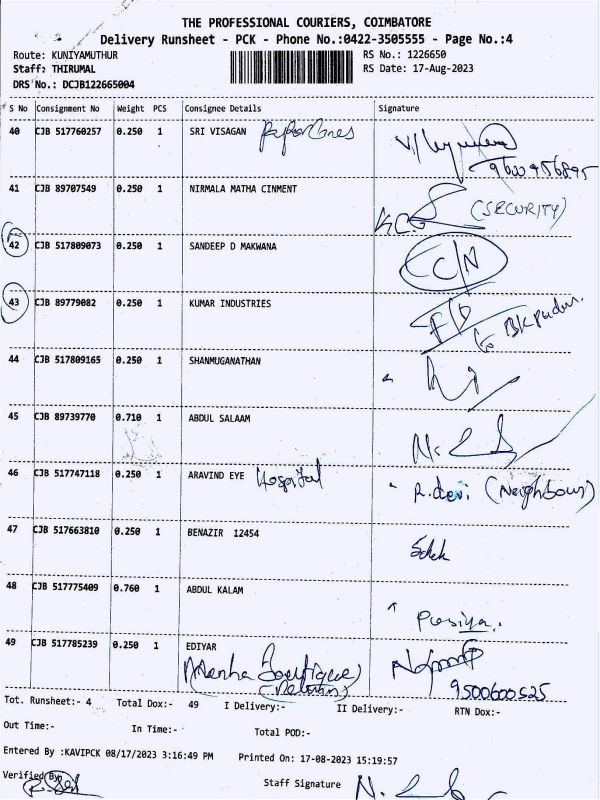 THE PROFESSIONAL COURIERS, COIMBATORE
Delivery Runsheet - PCK - Phone No.:0422-3505555 - Page No.:4
Route: KUNIYAMUTHUR RS No.: 1226650
Staff: THIRUMAL RS Date: 17-Aug-2023
DRS No.: DCJB122665004
S No Consignment No Weight PCS Consignee Details Signature
40 CJB 517760257 0.250 1 SRI VISAGAN
9600956895
41 CJB 89707549 0.250 1 NIRMALA MATHA CINMENT (SECURITY)
42 CJB 517809073 0.250 1 SANDEEP D MAKWANA C/N
43 CJB 89779082 0.250 1 KUMAR INDUSTRIES F/D to BK pudur
44 CJB 517809165 0.250 1 SHANMUGANATHAN
45 CJB 89739770 0.710 1 ABDUL SALAAM
46 CJB 517747118 0.250 1 ARAVIND EYE Hospital R.devi (Neighbour)
47 CJB 517663810 0.250 1 BENAZIR 12454
48 CJB 517775409 0.760 1 ABDUL KALAM
49 CJB 517785239 0.250 1 EDIYAR
Boutique) 9500600525
Tot. Runsheet:- 4 Total Dox:- 49 I Delivery:- II Delivery:- RTN Dox:-
Out Time:- In Time:- Total POD:-
Entered By :KAVIPCK 08/17/2023 3:16:49 PM Printed On: 17-08-2023 15:19:57
Verified By Staff Signature